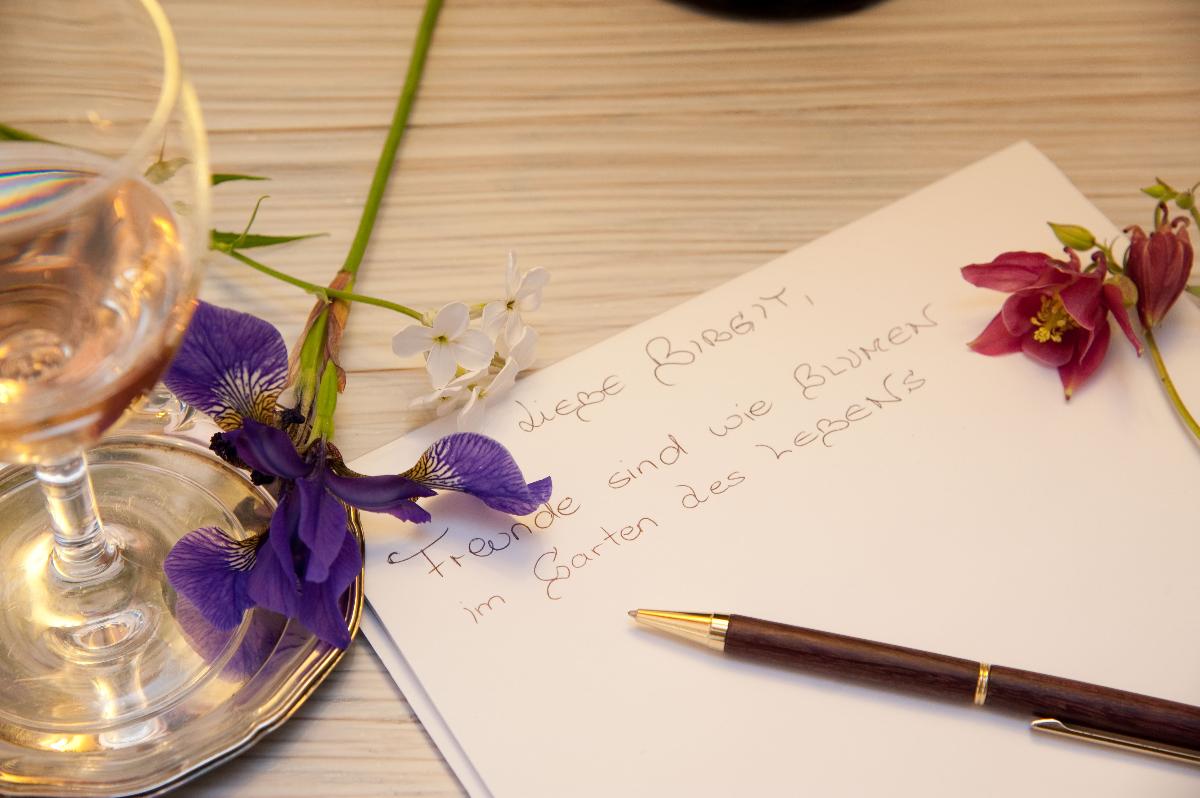 Liebe Birgit,
Freunde sind wie Blumen
im Garten des Lebens